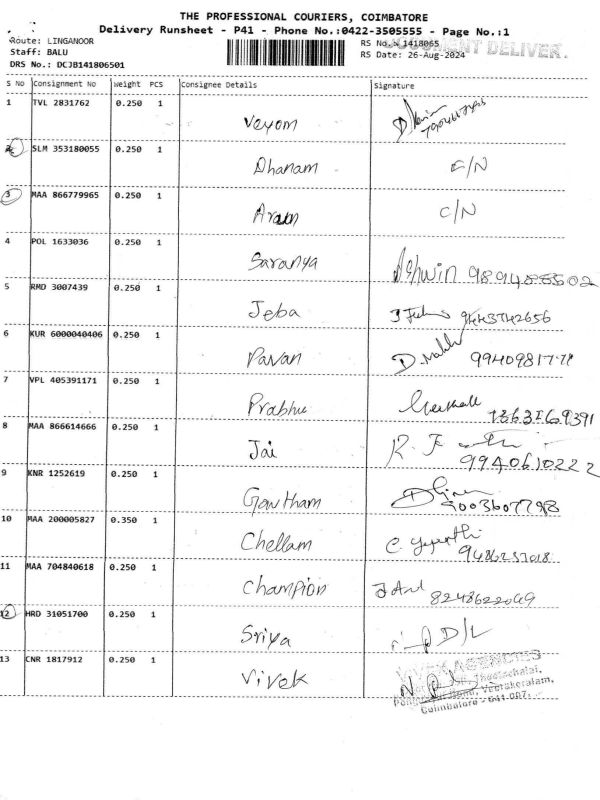 THE PROFESSIONAL COURIERS, COIMBATORE
Delivery Runsheet - P41 - Phone No.:0422-3505555 - Page No.:1
Route: LINGANOOR
RS No.: 1418065
DOCUMENT DELIVER.
Staff: BALU
RS Date: 26-Aug-2024
DRS No.: DCJB141806501
S No Consignment No Weight PCS Consignee Details Signature
1 TVL 2831762 0.250 1 Veyom
2 SLM 353180055 0.250 1 Dhanam C/N
3 MAA 866779965 0.250 1 Arun C/N
4 POL 1633036 0.250 1 Saranya Ashwin
5 RMD 3007439 0.250 1 Jeba 9443742656
6 KUR 6000040406 0.250 1 Pavan D. 9940981771
7 VPL 405391171 0.250 1 Prabhu
8 MAA 866614666 0.250 1 Jai 9940610222
9 KNR 1252619 0.250 1 Gowtham
10 MAA 200005827 0.350 1 Chellam C.
11 MAA 704840618 0.250 1 Champion 8248622049
12 HRD 31051700 0.250 1 Sriya D/L
13 CNR 1817912 0.250 1 Vivek
VIVEK AGENCIES
Veerakeralam,
Coimbatore - 641 007.